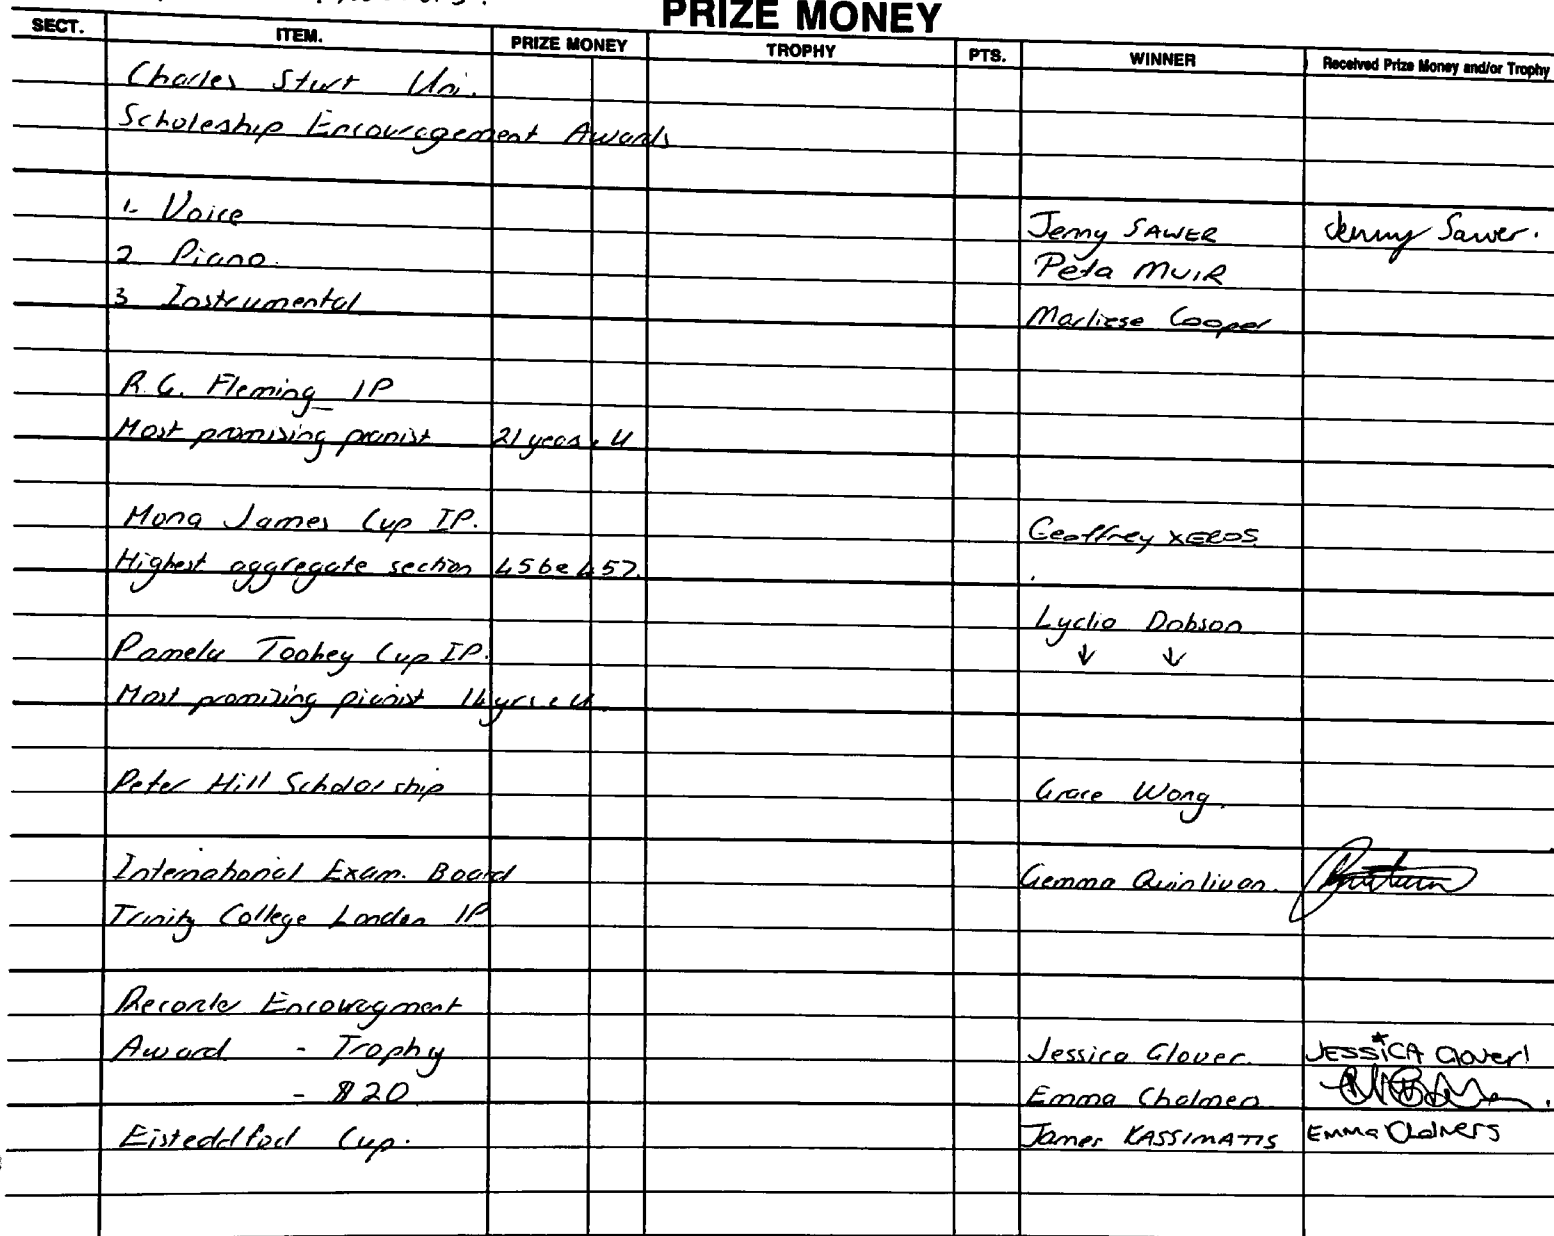 PRIZE MONEY
SECT. ITEM. PRIZE MONEY TROPHY PTS. WINNER Received Prize Money and/or Trophy
Charles Sturt Uni.
Scholeship Encouragement Awards
1. Voice Jenny SAWER Jenny Sawer.
2 Piano. Peta MUIR
3 Instrumental Marliese Cooper
R.G. Fleming IP
Most promising pianist 21 years & U
Mona James Cup IP. Geoffrey XEROS
Highest aggregate section 456 & 457.
Lydia Dobson
Pamela Toohey Cup IP. ↓ ↓
Most promising pianist 14 yrs & U.
Peter Hill Scholarship Grace Wong.
International Exam. Board Gemma Quinlivan.
Trinity College London IP
Recorder Encouragment
Award - Trophy Jessica Glover. JESSICA Glover!
- $20 Emma Chalmers
Eisteddfod Cup. James KASSIMATIS EMMA Chalmers